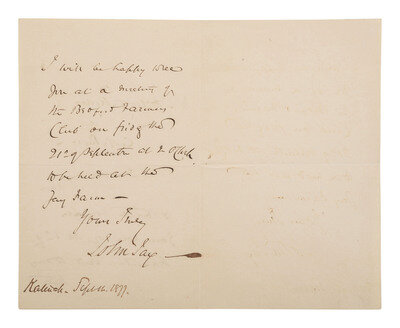 I will be happy to see
you at a meeting of
the Bedford Farmers
Club on friday the
21st of September at 2 o'Clock
to be held at the
Jay Farm —
Yours truly
John Jay
Katonah. Sept. 1877.